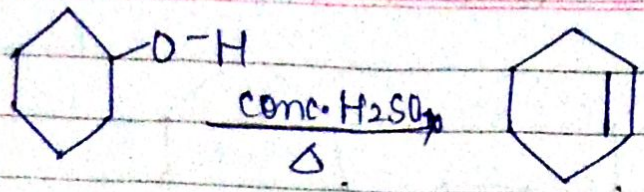 O-H
conc. H2SO4
Δ